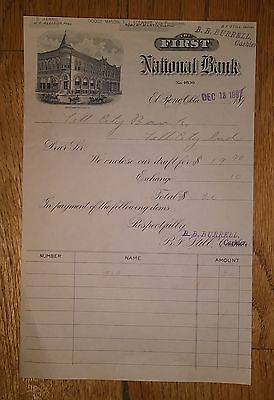 B. B. BURRELL,
Cashier
THE
FIRST
National Bank
No. 4830
El Reno, Okla. DEC 18 189
Tell City Bank
Tell City Ind
Dear Sir:
We enclose our draft for $ 19 90
Exchange 10
Total $ 20
In payment of the following items.
Respectfully,
B. B. BURRELL,
Cashier.
NUMBER NAME AMOUNT